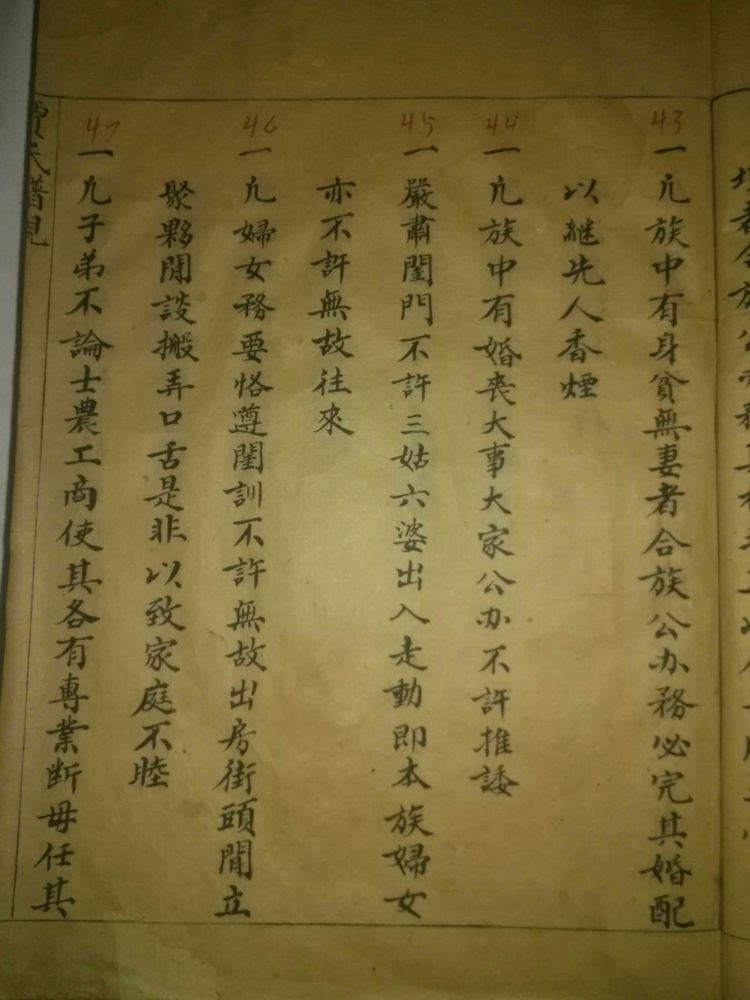 43
一凢族中有身貧無妻者合族公办務必完其婚配
以継先人香煙
44
一凢族中有婚喪大事大家公办不許推諉
45
一嚴肅閨門不許三姑六婆出入走動即本族婦女
亦不許無故往來
46
一凢婦女務要恪遵閨訓不許無故出房街頭閒立
聚夥閒談搬弄口舌是非以致家庭不睦
47
一凢子弟不論士農工商使其各有專業断毋任其
賈氏譜規